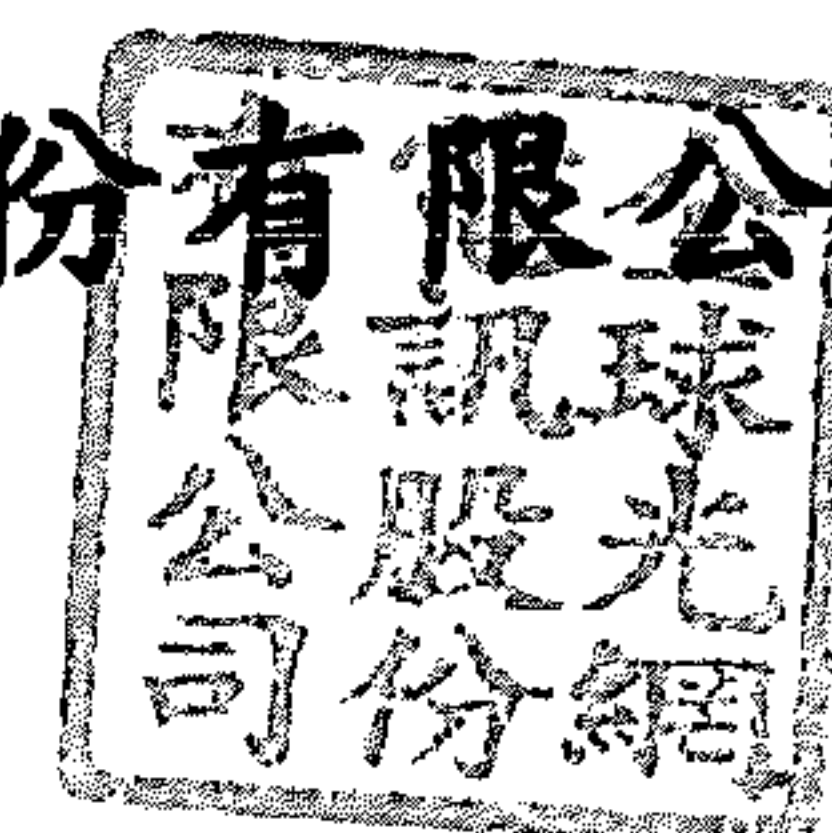 份有限公
全球光網
訊股份
有限公司